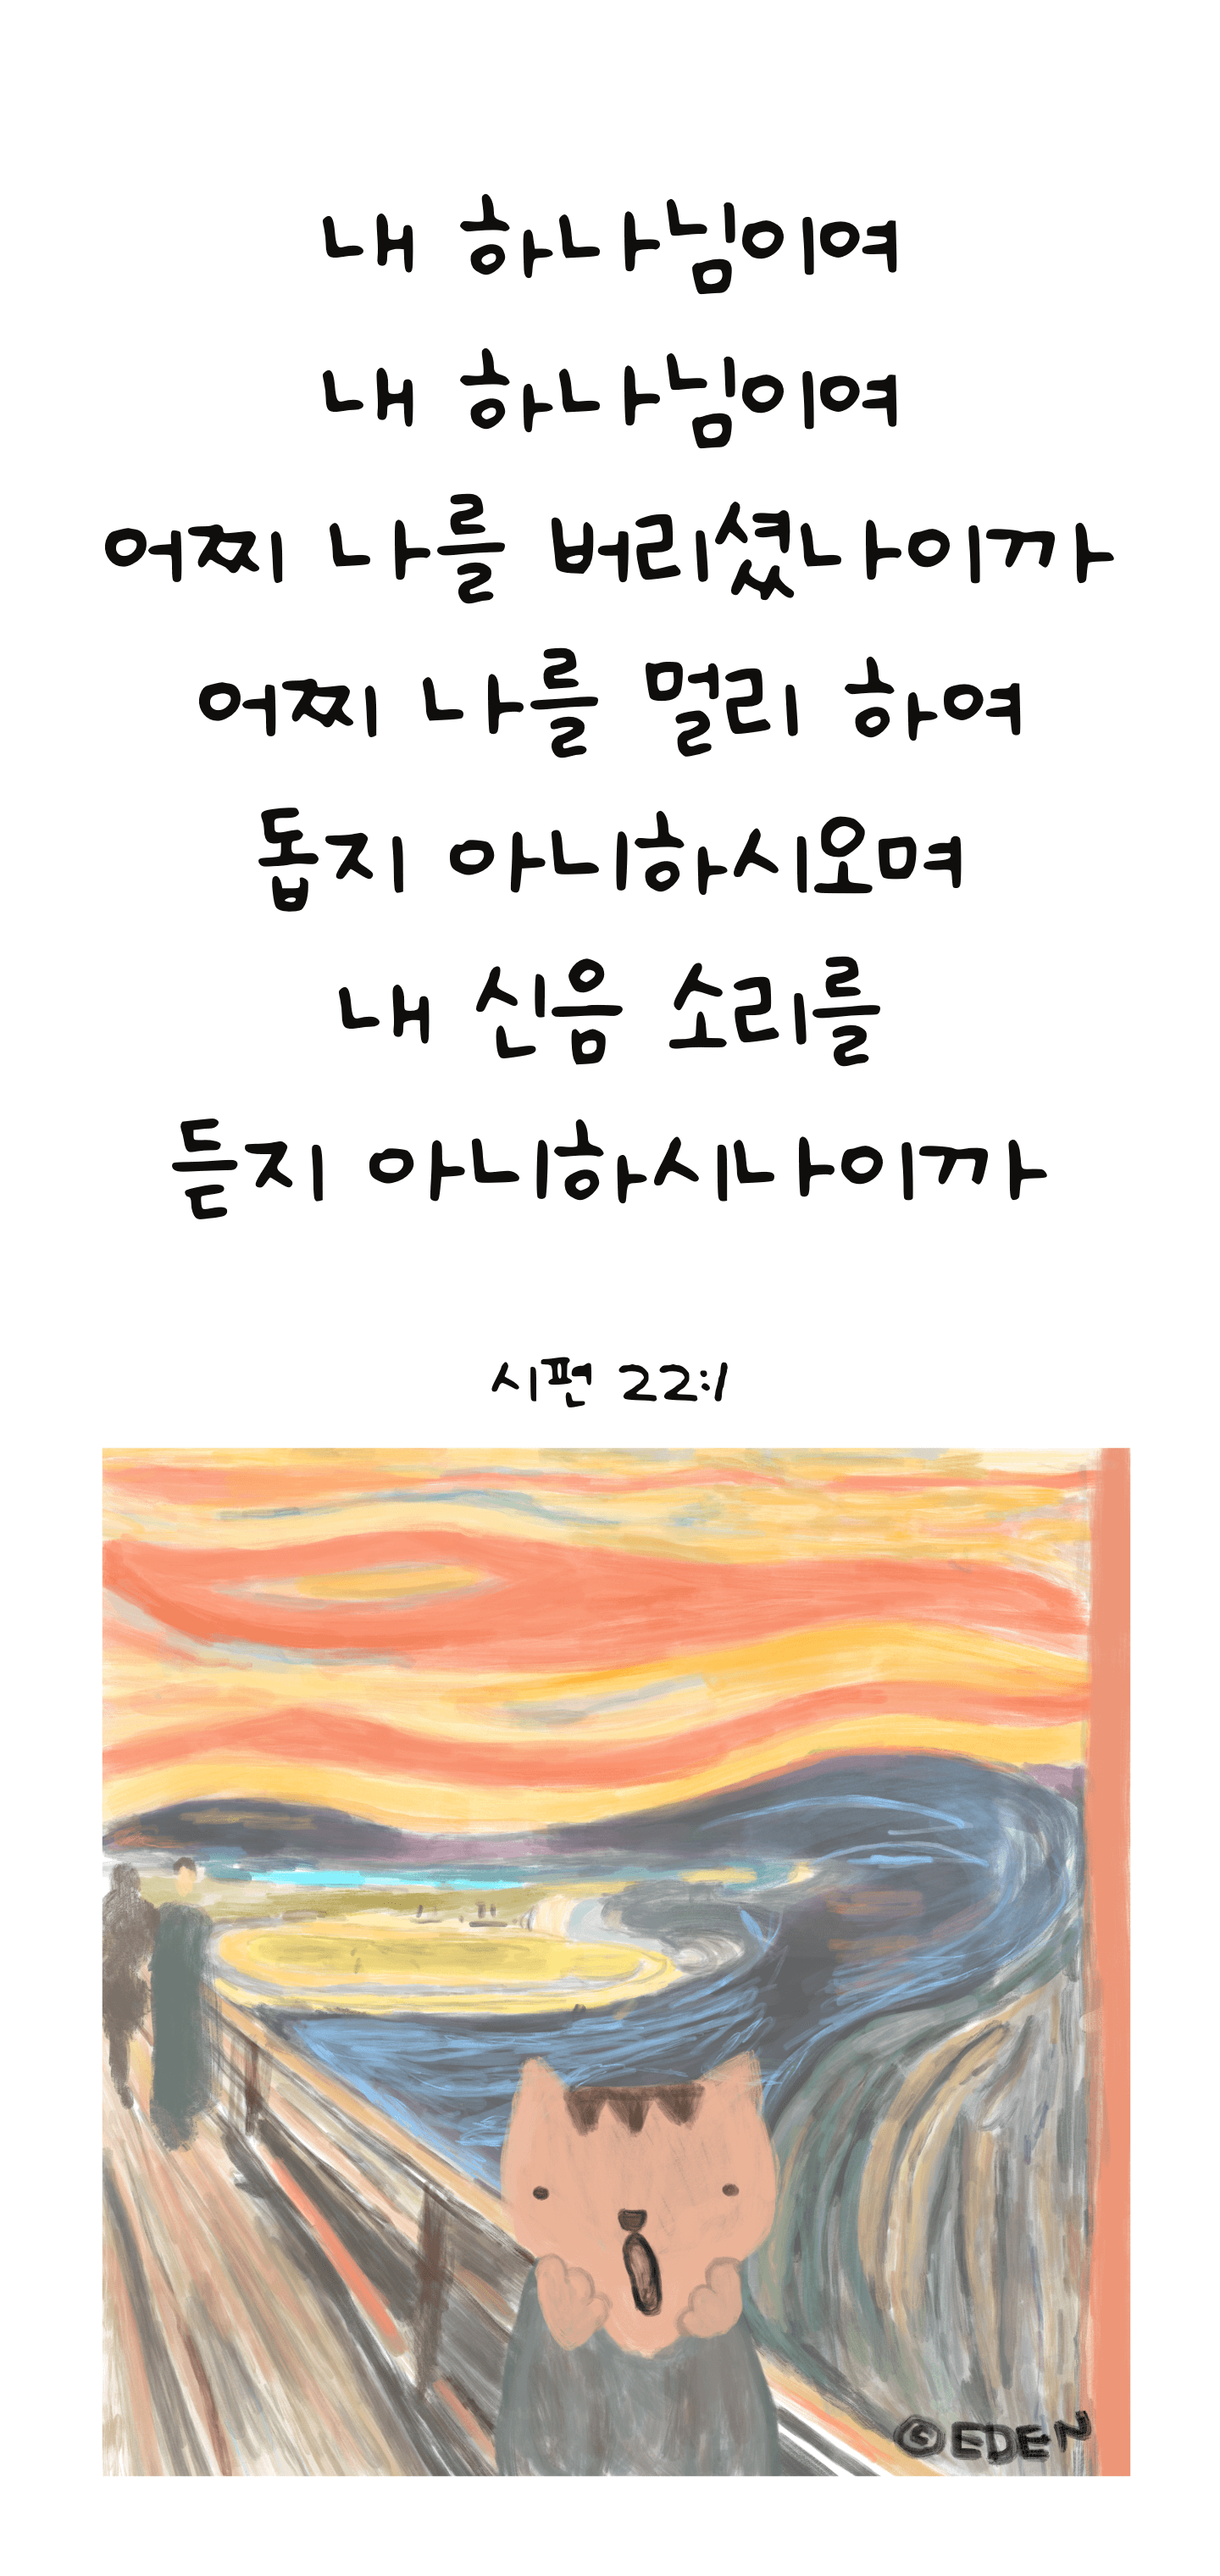 내 하나님이여
내 하나님이여
어찌 나를 버리셨나이까
어찌 나를 멀리 하여
돕지 아니하시오며
내 신음 소리를
듣지 아니하시나이까
시편 22:1
©EDEN